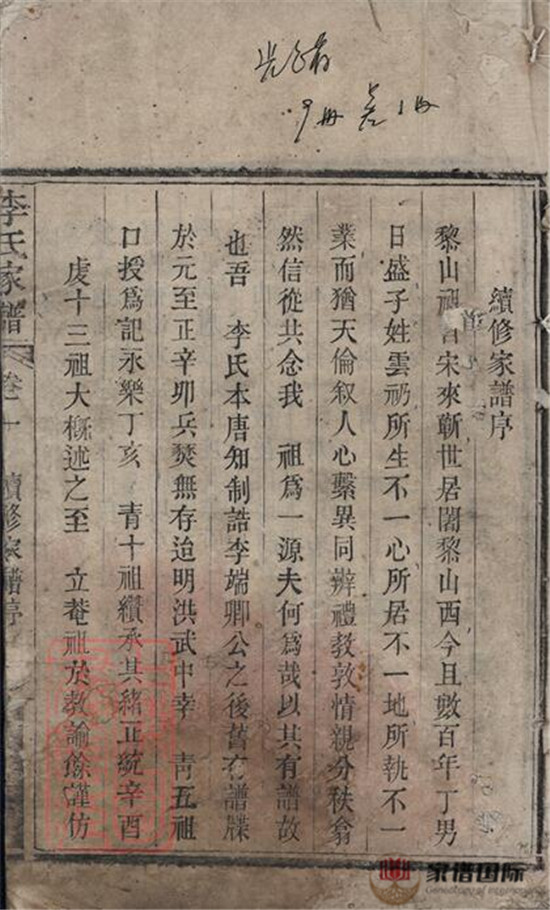 光緒
9冊 差1冊
續修家譜序
黎山祖自宋來蘄世居闍黎山西今且數百年丁男
日盛子姓雲礽所生不一心所居不一地所執不一
業而猶天倫叙人心繫異同辨禮教敦情親分秩翕
然信從共念我 祖為一源夫何為哉以其有譜故
也吾 李氏本唐知制誥李端卿公之後舊有譜牒
於元至正辛卯兵燹無存迨明洪武中幸 靑五祖
口授爲記永樂丁亥 青十祖纘承其緒正統辛酉
虔十三祖大槪述之至 立菴祖於教諭餘謹仿
李氏家譜 卷一 續修家譜序
家谱国际
Genealogy of International